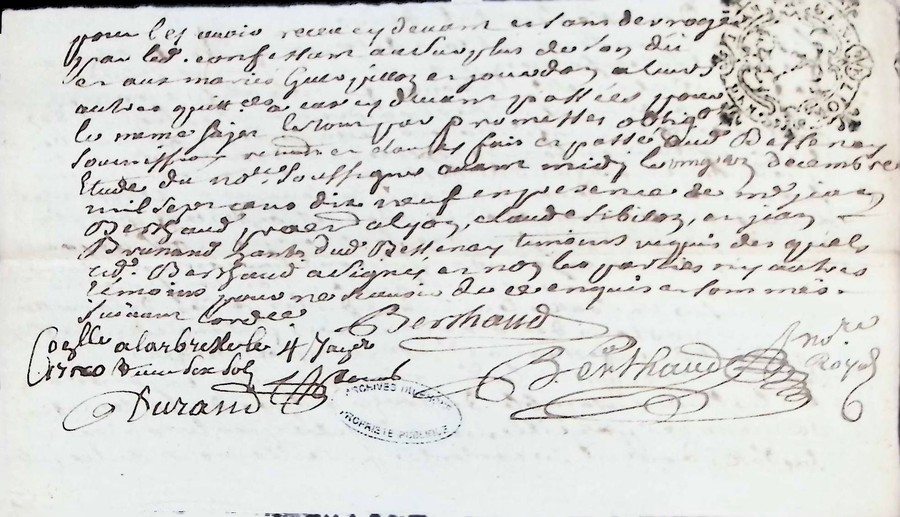 pour les avoir receu cy devant et sans derroge
par led. confessant au surplus de son du
et aux mariés et Jourdan a leurs
autres quittces a eux cy devant passées pour
le meme sujet le tout par promesses obligons
soumissions et clauses fait et passé aud Bessenay
Etude du nore soussigne avant midy le decembre
mil sept cens dix neuf en presence de me jean
Berthaud pratn a lyon, claude et jean
Brunand habts dud Bessenay temoins requis des quels
led. Berthaud a signé et non les parties ny autres
temoins pour ne scavoir de ce enquis et sommés.
suivant lordce
Berthaud
Coelle a larbresle le 4 Janer
1720 Reçu six sols
Durand
Berthaud nore
Royal
ARCHIVES DU RHONE
PROPRIETE PUBLIQUE